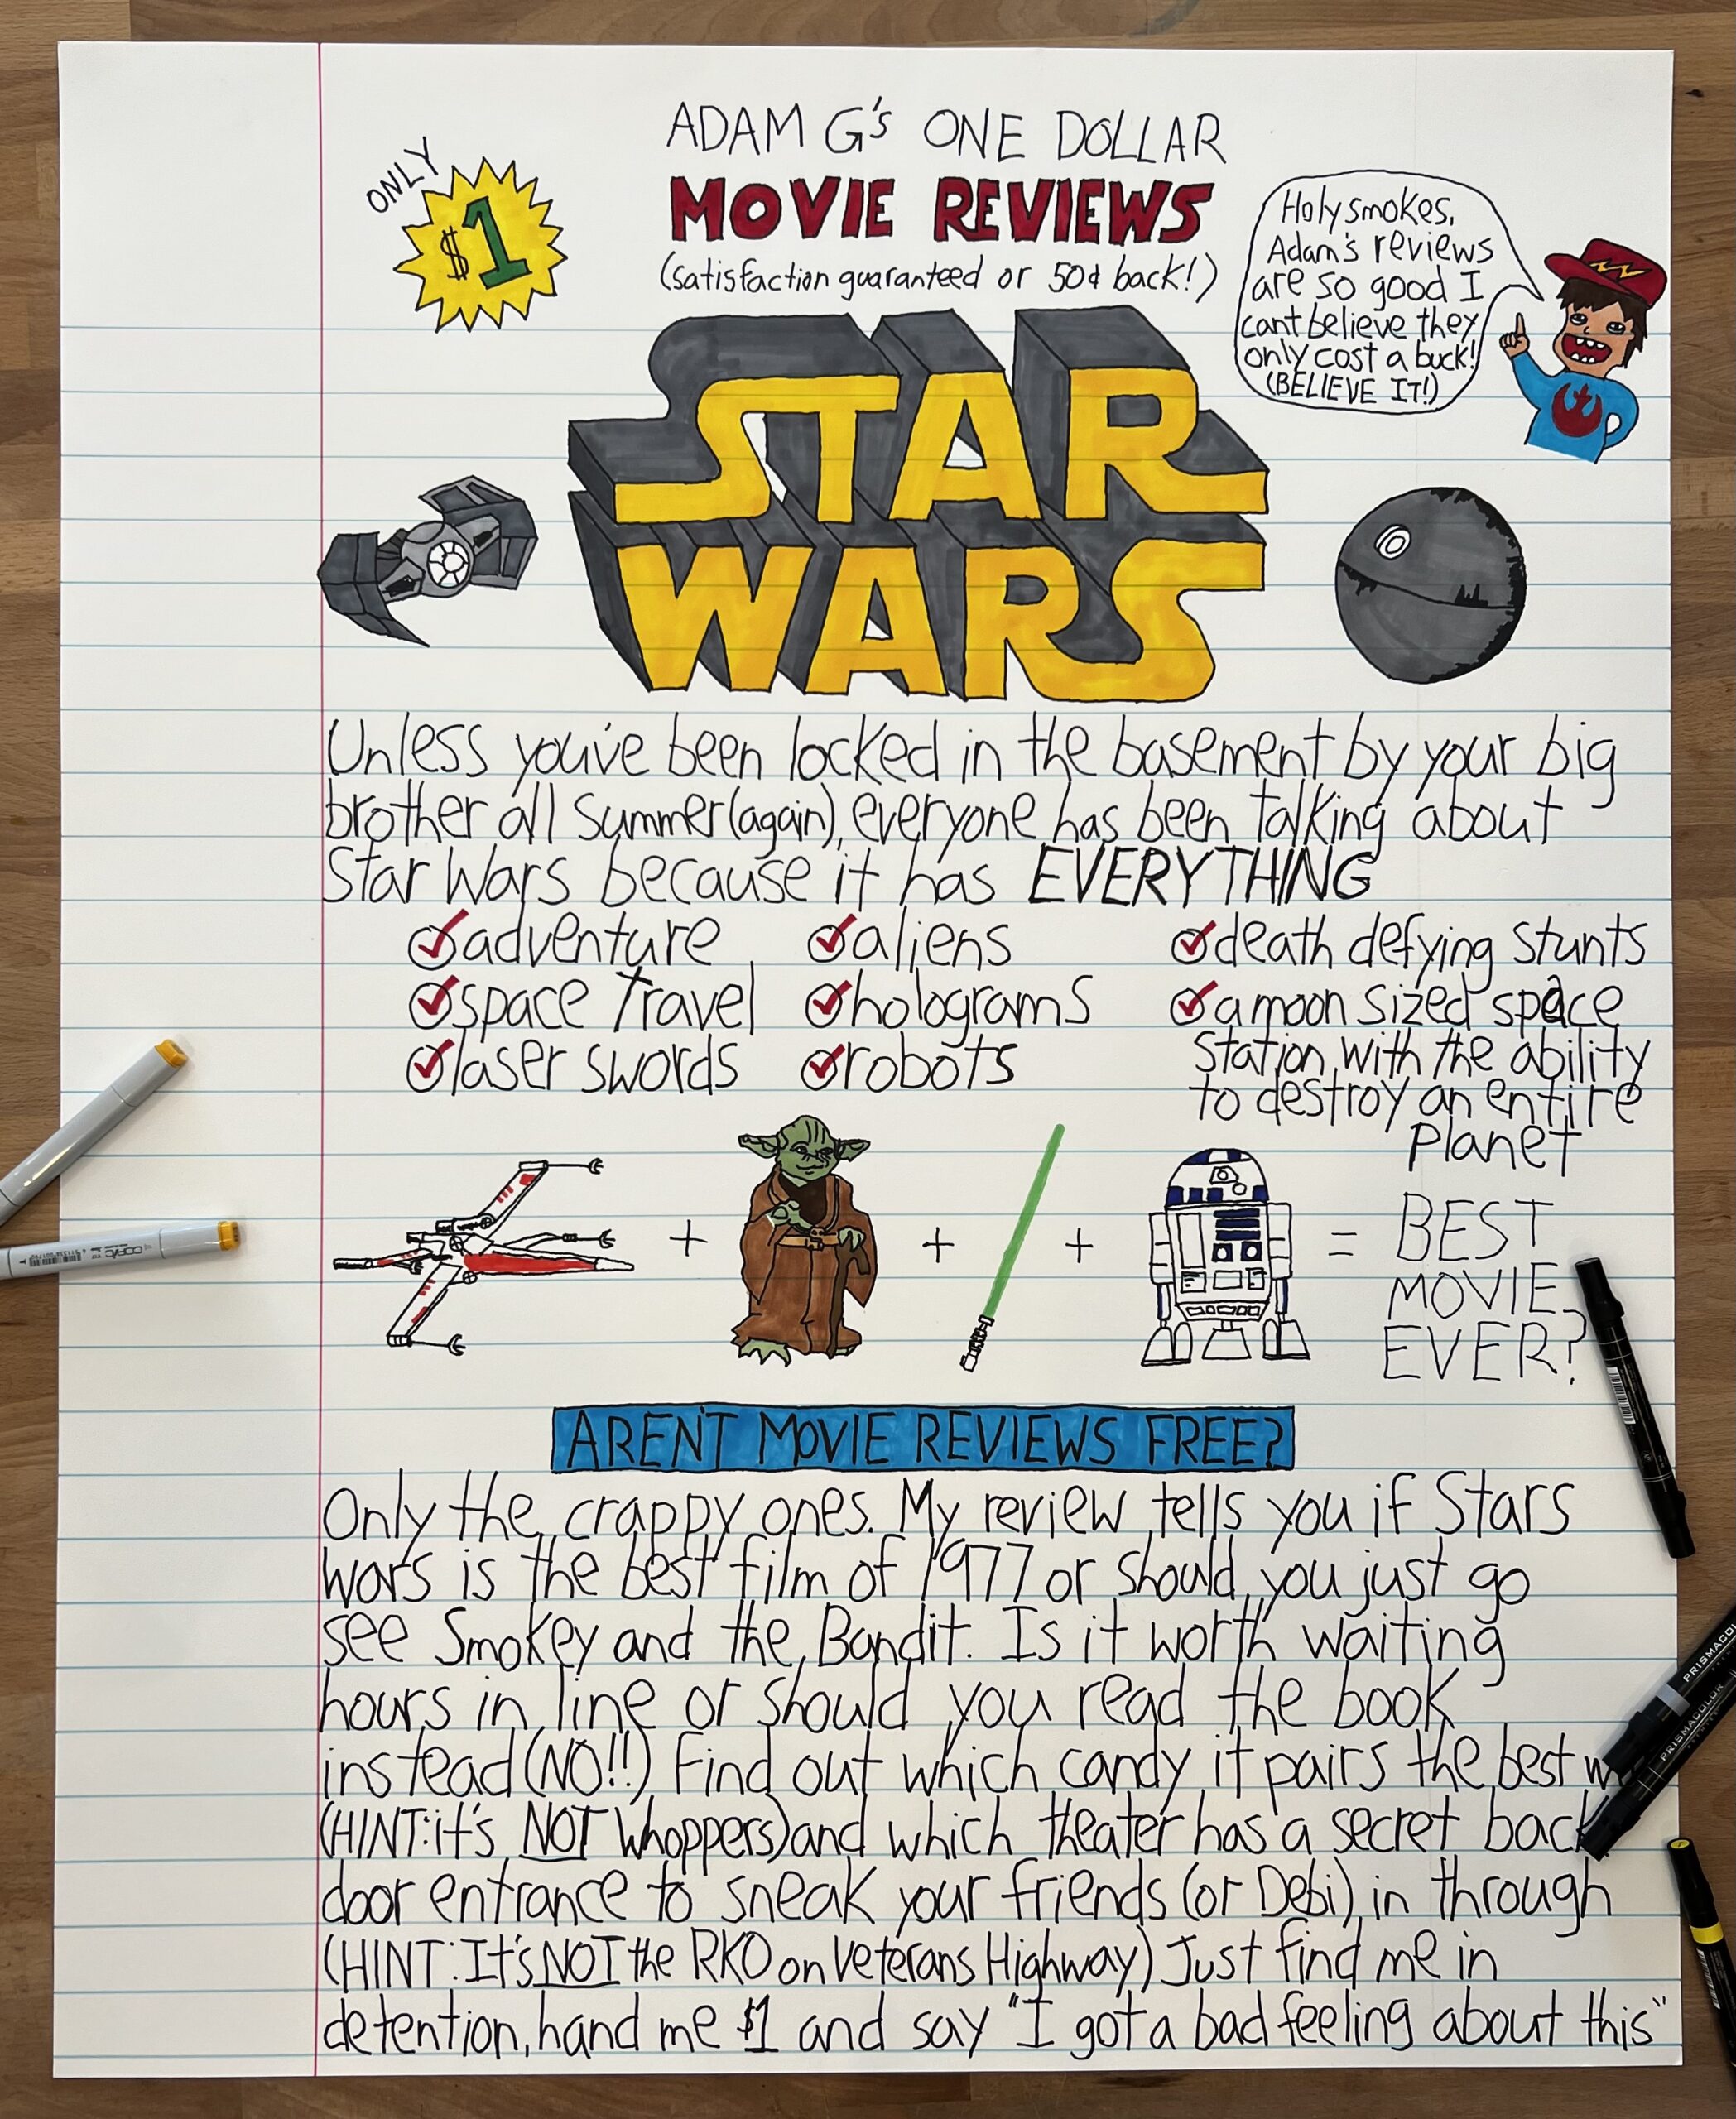 ADAM G's ONE DOLLAR
MOVIE REVIEWS
(satisfaction guaranteed or 50¢ back!)
ONLY
$1
Holy smokes,
Adam's reviews
are so good I
can't believe they
only cost a buck!
(BELIEVE IT!)
STAR
WARS
Unless you've been locked in the basement by your big
brother all summer (again), everyone has been talking about
Star Wars because it has EVERYTHING
adventure
space travel
laser swords
aliens
holograms
robots
death defying stunts
a moon sized space
station with the ability
to destroy an entire
planet
+ + + = BEST
MOVIE
EVER?
AREN'T MOVIE REVIEWS FREE?
Only the crappy ones. My review tells you if Stars
wars is the best film of 1977 or should you just go
see Smokey and the Bandit. Is it worth waiting
hours in line or should you read the book
instead (NO!!) Find out which candy it pairs the best
(HINT: it's NOT Whoppers) and which theater has a secret back
door entrance to sneak your friends (or Debi) in through
(HINT: It's NOT the RKO on Veterans Highway) Just find me in
detention, hand me $1 and say "I got a bad feeling about this"
COPIC
PRISMACOLOR
PRISMACOLOR